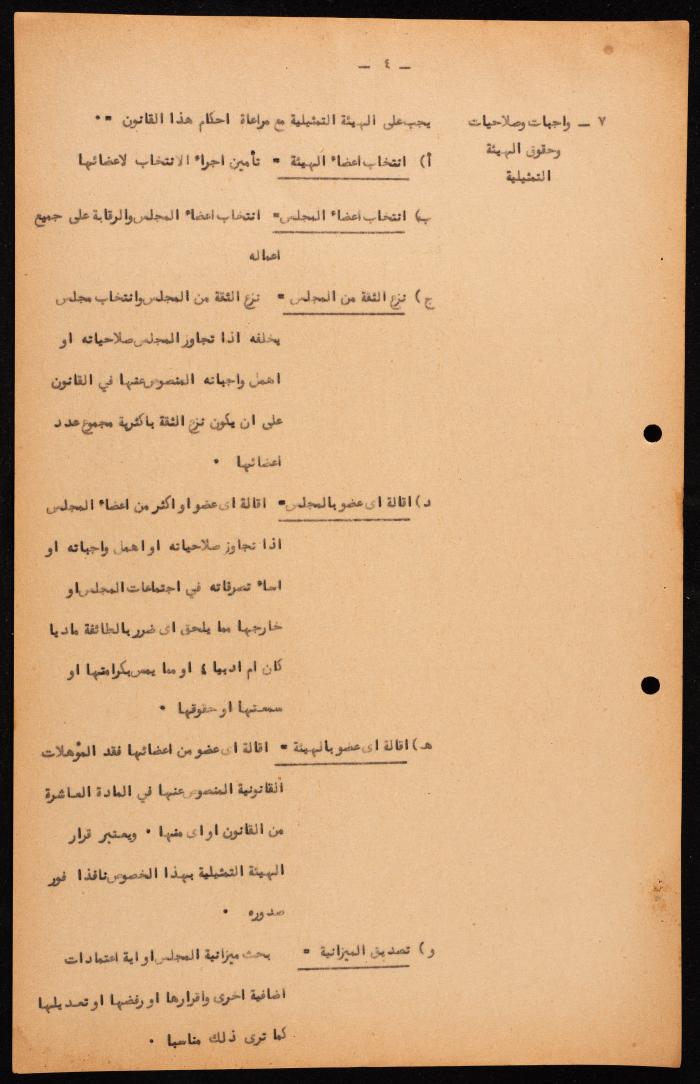 — ٤ —
٧ — واجبات وصلاحيات وحقوق الهيئة التمثيلية
يجب على الهيئة التمثيلية مع مراعاة احكام هذا القانون :-
أ) انتخاب اعضاء الهيئة = تأمين اجراء الانتخاب لاعضائها
ب) انتخاب اعضاء المجلس = انتخاب اعضاء المجلس والرقابة على جميع
اعماله
ج) نزع الثقة من المجلس = نزع الثقة من المجلس وانتخاب مجلس
يخلفه اذا تجاوز المجلس صلاحياته او
اهمل واجباته المنصوص عنها في القانون
على ان يكون نزع الثقة باكثرية مجموع عدد
اعضائها .
د) اقالة اى عضو بالمجلس = اقالة اى عضو او اكثر من اعضاء المجلس
اذا تجاوز صلاحياته او اهمل واجباته او
اساء تصرفاته في اجتماعات المجلس او
خارجها مما يلحق اى ضرر بالطائفة ماديا
كان ام ادبيا ، او مما يمس بكرامتها او
سمعتها او حقوقها .
هـ) اقالة اى عضو بالهيئة = اقالة اى عضو من اعضائها فقد المؤهلات
القانونية المنصوص عنها في المادة العاشرة
من القانون او اى منها . ويعتبر قرار
الهيئة التمثيلية بهذا الخصوص نافذا فور
صدوره .
و) تصديق الميزانية = بحث ميزانية المجلس او اية اعتمادات
اضافية اخرى واقرارها او رفضها او تعديلها
كما ترى ذلك مناسبا .